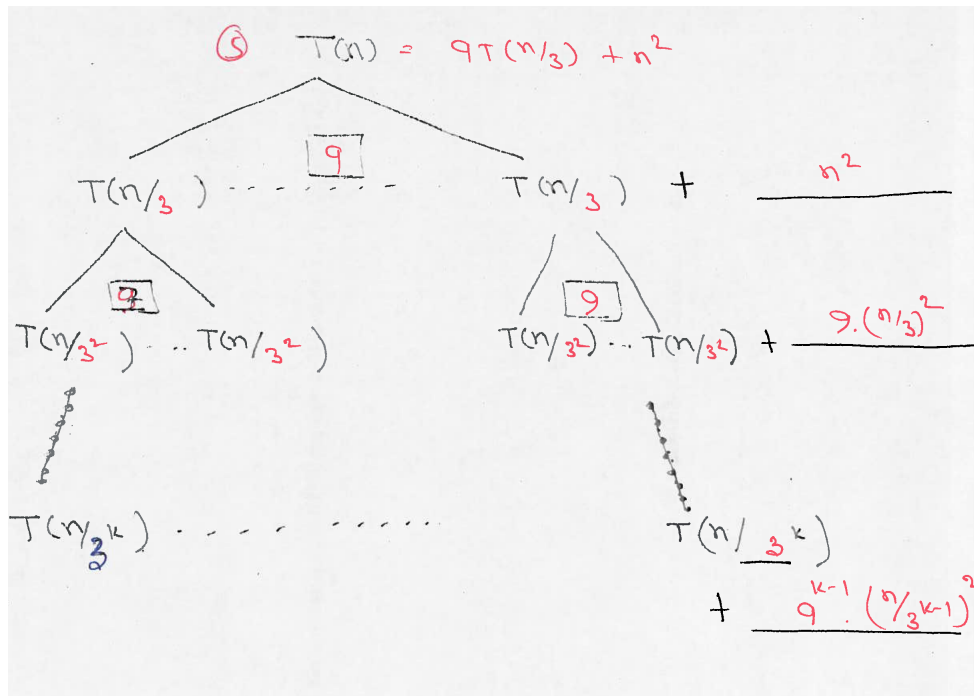 ⑤ T(n) = 9T(n/3) + n²
9
T(n/3) - - - - - - - - T(n/3) + n²
9 9
T(n/3²) - .. T(n/3²) T(n/3²) ... T(n/3²) + 9.(n/3)²
T(n/3ᵏ) - - - - - ...... T(n/3ᵏ)
+ 9ᵏ⁻¹. (n/3ᵏ⁻¹)²